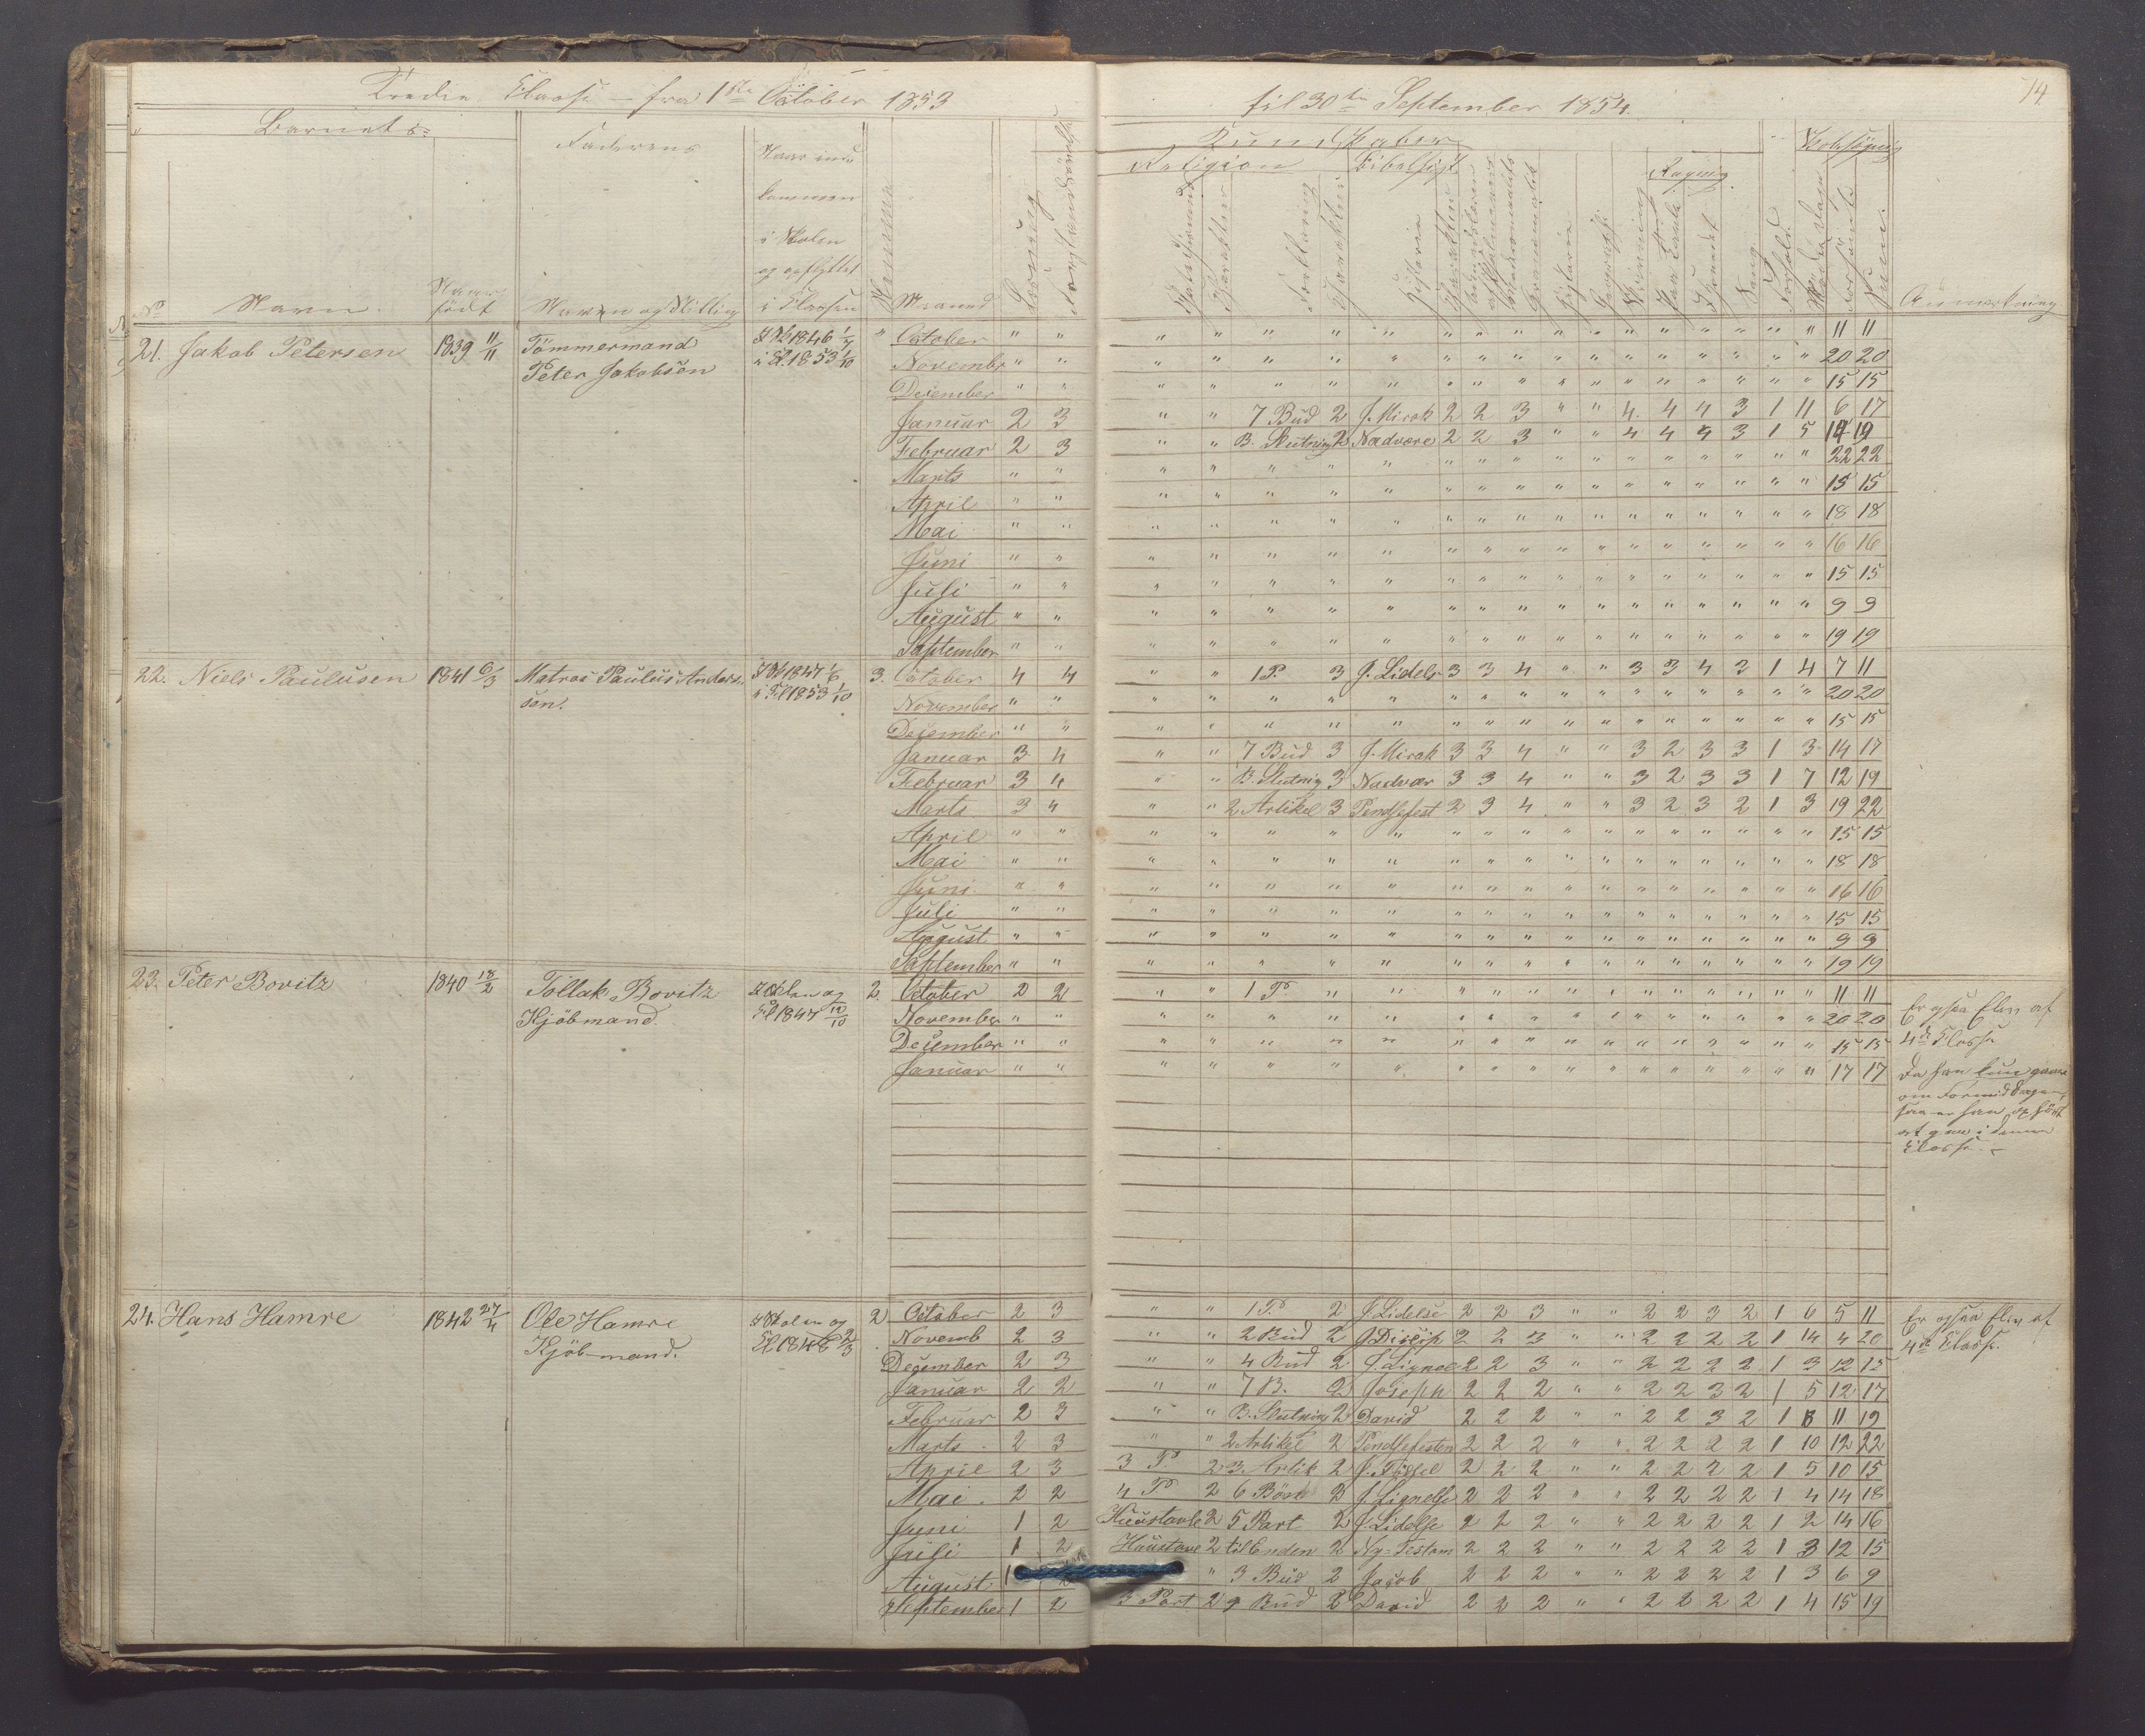 Tredie Classe — fra 1ste October 1853
til 30te September 1854.
74
Barnets
Faderens
Naar ind-
kommen
i Skolen
og opflyttet
i Classen
Kundskaber
Religion
Bibelhist.
Regning
Skolesøgning
No
Navn.
Naar
født
Navn og Stilling
Maaned
Anmærkning
21. Jakob Petersen 1839 11/11 Tömmermand
Peter Jakobsen
October " " 11 11
November " " 20 20
December " " 15 15
Januar 2 3 " " 7 Bud 2 J. Mirak 2 2 3 " " 4 4 4 3 1 11 6 17
Februar 2 3 " " B. Slutning 2 Nadvere 2 2 3 " " 4 4 4 3 1 5 14 19
Marts " " 22 22
April " " 15 15
Mai " " 18 18
Juni " " 16 16
Juli " " 15 15
August " " 9 9
September " " 19 19
22. Niels Paulusen 1841 6/3 Matros Paulus Anders-
sen.
3. October 4 4 " " 1 P. 3 J. Lidels 3 3 4 " " 3 3 4 2 1 4 7 11
November " " 20 20
December " " 15 15
Januar 3 4 " " 7 Bud 3 J. Mirak 3 3 4 " " 3 2 3 3 1 3 14 17
Februar 3 4 " " B. Slutnig 3 Nadver 3 3 4 " " 3 2 3 3 1 7 12 19
Marts 3 4 " " 2 Artikel 3 Pendsefest 2 3 4 " " 3 2 3 2 1 3 19 22
April " " 15 15
Mai " " 18 18
Juni " " 16 16
Juli " " 15 15
August " " 9 9
September " " 19 19
23. Peter Bovitz 1840 18/2 Tollak Bovitz
Kjöbmand.
2. October 2 2 " " 1 P. " " 11 11
November " " 20 20
December " " 15 15
Januar " " 17 17
Er ogsaa Elev af
4de Classe
Da han kun
om Formiddagen,
saa er han ophört
at gaae i denne
Classe.
24. Hans Hamre 1842 27/4 Ole Hamre
Kjöbmand.
i Skolen og
Cl 1848 2/3
2 October 2 3 " " 1 P. 2 J. Lidelse 2 2 3 " " 2 2 3 2 1 6 5 11
Novemb 2 3 " " 2 Bud 2 J. Discip 2 2 3 " " 2 2 2 2 1 14 4 20
December 2 3 " " 4 Bud 2 J. Lignel 2 2 3 " " 2 2 2 2 1 3 12 15
Januar 2 2 " " 7 B. 2 Joseph 2 2 2 " " 2 2 3 2 1 5 12 17
Februar 2 3 " " B. Slutning 2 David 2 2 2 " " 2 2 3 2 1 8 11 19
Marts 2 3 " " 2 Artikel 2 Pendsefesten 2 2 2 " " 2 2 2 2 1 10 12 22
April 2 3 3 P 2 3. Artik 2 J. Födsel 2 2 2 " " 2 2 2 2 1 5 10 15
Mai 2 2 4 P 2 6 Bön 2 J. Lignelse 2 2 2 " " 2 2 2 2 1 4 14 18
Juni 1 2 Huustavle 2 5 Part 2 J. Lidelse 2 2 2 " " 2 2 2 2 1 2 14 16
Juli 1 2 Huustave 2 til Enden 2 Ny-Testam 2 2 2 " " 2 2 2 2 1 3 12 15
August 1 2 " 3 Bud 2 Jacob 2 2 2 " " 2 2 2 2 1 3 6 9
September 1 2 3 Part 2 9 Bud 2 David 2 2 2 " " 2 2 2 2 1 4 15 19
Er ogsaa Elev af
4de Classe.